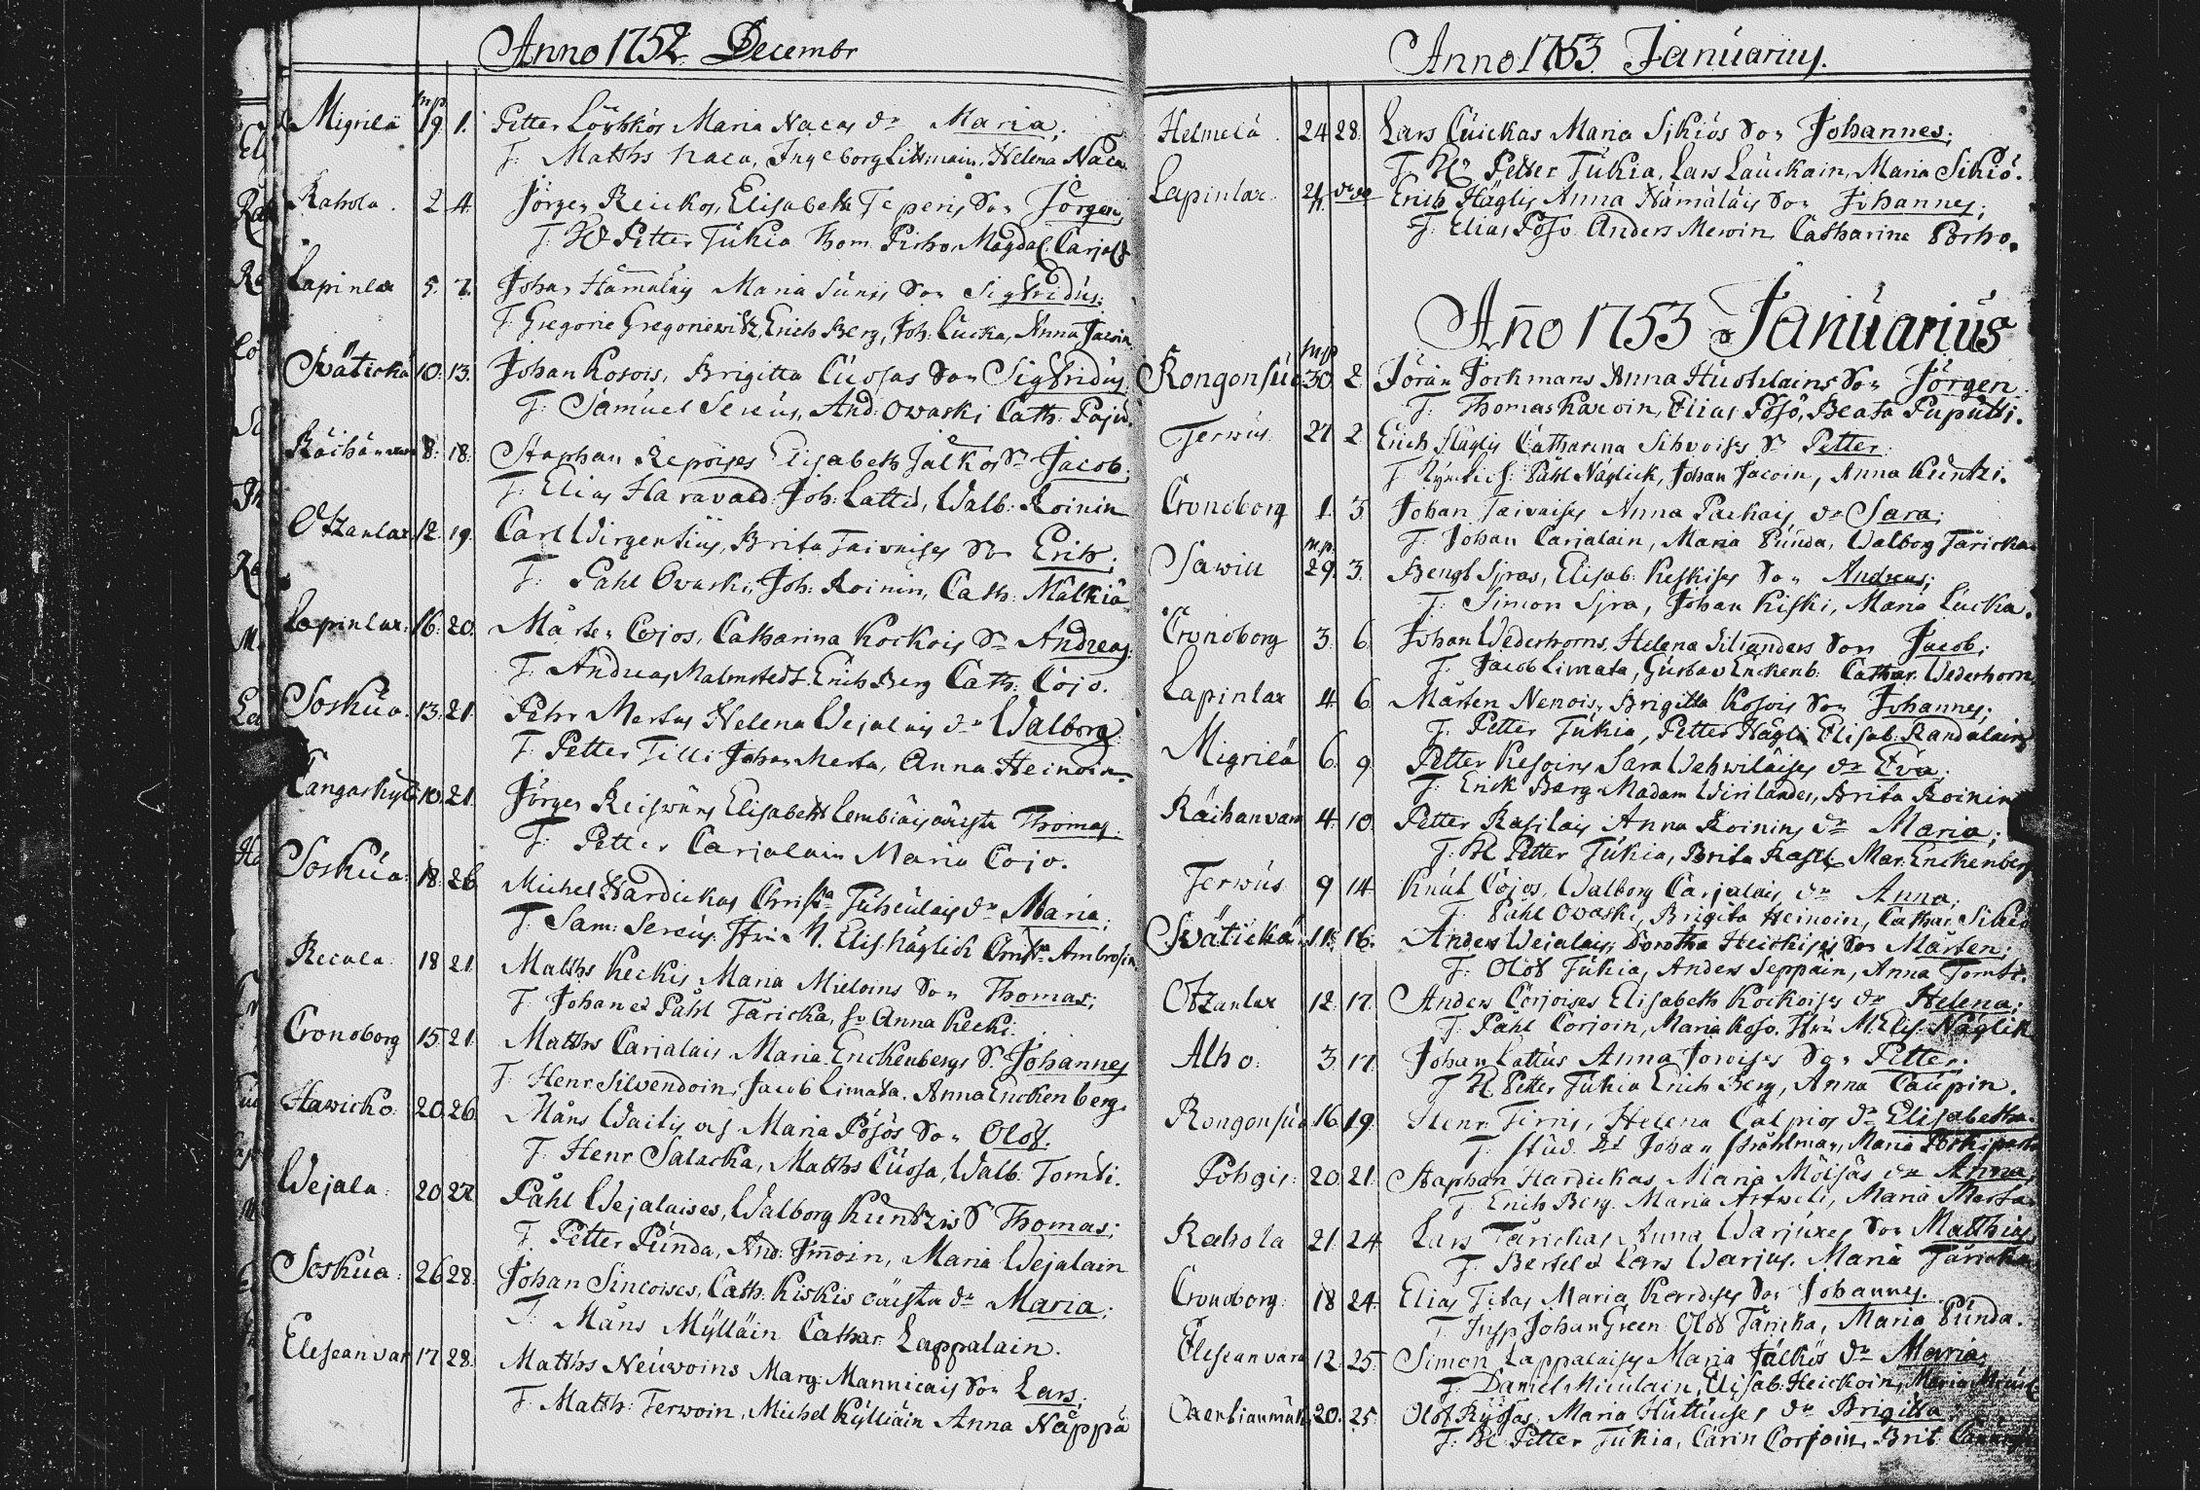 Anno 1752 Decembr
mp
Migrilä 19. 1. Petter Lövskös Maria Nacas dr Maria;
T: Matths Naca, Ingeborg Litmain, Helena Naca
Rahola. 2 4. Jörgen Reickos, Elisabeth Teperis Son Jörgen;
T: H Petter Tukia Thom Pirho, Magdal. Carjal
Lapinlax 5. 7. Johan Hämäläis Maria Sunis Son Sigfridus;
T: Gregorie Gregoriewitz, Erich Berg, Joh: Cucka, Anna Jacoin
Svätickä 10. 13. Johan Kosois, Brigitta Cuosas Son Sigfridus.
T: Samuel Sereus, And: Owaski Cath: Paju.
Räihänvara 8. 18. Staphan Repoises Elisabeth Jalkos S. Jacob;
T: Elias Haravald Joh: Lattu, Walb: Roinin
Otzanlax 12. 19. Carl Wirgentius, Brita Taivaises Son Erich;
T: Påhl Ovaski, Joh: Roinin, Cath: Malkiä
Lapinlax: 16. 20. Mårten Cojos, Catharina Kockois S. Andreas.
T: Andreas Malmstedt. Erich Berg Cath: Cojo.
Soskua. 13. 21. Pehr Mertas Helena Wejalais dr Walborg.
T: Petter Tilli Johan Merta, Anna Heinoin
Cangaskylä 10. 21. Jörgen Reiswäns Elisabeth Lembiäis äckta Thomas.
T: Petter Carjalain Maria Cojo.
Soskua. 18. 26 Michel Hardickas Christa Tuhculais dr Maria;
T: Sam: Sereus. Fru M. Elis. Häglich Christa Ambrosin
Recala. 18 21. Matths Keckis Maria Mieloins Son Thomas;
T: Johan et Påhl Täricka, Anna Kecki.
Cronoborg 15. 21. Matths Carjalais Maria Enckenbergs S. Johannes
T: Henr Silvendoin, Jacob Limata. Anna Enckenberg.
Hawicko. 20. 26. Måns Wailis Maria Pösös Son Olof.
T: Henr Salacka, Matths Cuosa, Walb. Tomti.
Wejala. 20. 27. Påhl Wejalaises, Walborg Kuntzis S Thomas;
T: Petter Punda, And: Immoin, Maria Wejalain
Soskua. 26 28. Johan Sincoises, Cath: Kiskis oäckta dr Maria;
T: Måns Mylläin Cathar Lappalain.
Elisenvara 17 28. Matths Neuwoins Marg: Mannicais Son Lars;
T: Matth: Terwoin, Michel Kylliäin Anna Näppä
Anno 1753. Januarius.
Helmelä. 24 28. Lars Cuickas Maria Sikiös Son Johannes;
T. H Petter Tukia, Lars Lauckain, Maria Sikiö.
Lapinlax. 24 Erich Häglis Anna Hämäläis Son Johannes;
T: Elias Pösö Anders Mewin Catharina Porho.
Año 1753 Januarius
mp
Kongonsuo 30. 2 Jöran Jockmans Anna Huohlains Son Jörgen
T: Thomas Karoin, Elias Pösö, Beata Paputti.
Terwus. 27 2 Erich Häglis Catharina Sihvoises S. Petter.
T: Påhl Näglick, Johan Jacoin, Anna Kuntzi.
Cronoborg 1. 3 Johan Taivaises Anna Packais dr Sara;
T: Johan Carjalain, Maria Punda, Walborg Täricka
mp
Sawiu 29. 3. Bengt Sjras, Elisab: Keskises Son Andreas;
T: Simon Sjra, Johan Kiski, Maria Cucka.
Cronoborg 3. 6. Johan Wederhorns, Helena Silianders Son Jacob;
T: Jacob Limata, Gustav Enckenb: Cathar. Wederhorn
Lapinlax 4. 6. Mårten Nenois, Brigitta Kosois Son Johannes;
T: Petter Tukia, Petter Hägli Elisab: Randalain
Migrilä 6. 9 Petter Kesoins Sara Wehwiläises dr Eva;
T: Erick Berg Madam Wirilander, Brita Roinin
Räihänvara 4. 10. Petter Rasilais Anna Roinins dr Maria;
T: H Petter Tukia, Brita Rasil Mar: Enckenberg
Terwus 9 14 Knut Cojos, Walborg Carjalais dr Anna;
T: Påhl Ovaski, Brigita Heinoin, Cathar: Sikiö
Svätickä 11. 16. Anders Wejalais, Dorothea Heickises Son Mårten;
T: Olof Tukia, Anders Seppäin, Anna Tomti.
Otzanlax 12. 17. Anders Corjoises Elisabeth Kockoises dr Helena;
T: Påhl Corjoin, Maria Koso. Fru M. Elis: Näglik
Alho: 3. 17. Johan Lattus Anna Joroises Son Petter;
T: H Petter Tukia Erich Berg, Anna Caupin.
Kongonsuo 16. 19. Henr Tirris, Helena Calpios dr Elisabetha.
T: Stud Johan Stråhlman, Maria
Pohgis: 20. 21. Staphan Hardickas Maria Mölsäs dr Anna;
T: Erich Berg. Maria Artweli, Maria Merta
Rahola 21. 24 Lars Tärickas Anna Warjuxes Son Matthias
T: Bertel et Lars Warjus. Maria Täricka
Cronoborg: 18 24. Elias Titas Maria Kerdises Son Johannes.
T: Insp Johan Green Olof Täricka, Maria Punda.
Elisenvara 12. 25. Simon Lappalaises Maria Jalkös dr Maria;
T: Daniel Miculain, Elisab: Heickoin, Maria
20. 25. Olof Ryösas, Maria Huttuises dr Brigitta.
T: H Petter Tukia, Carin Corjoin, Brit